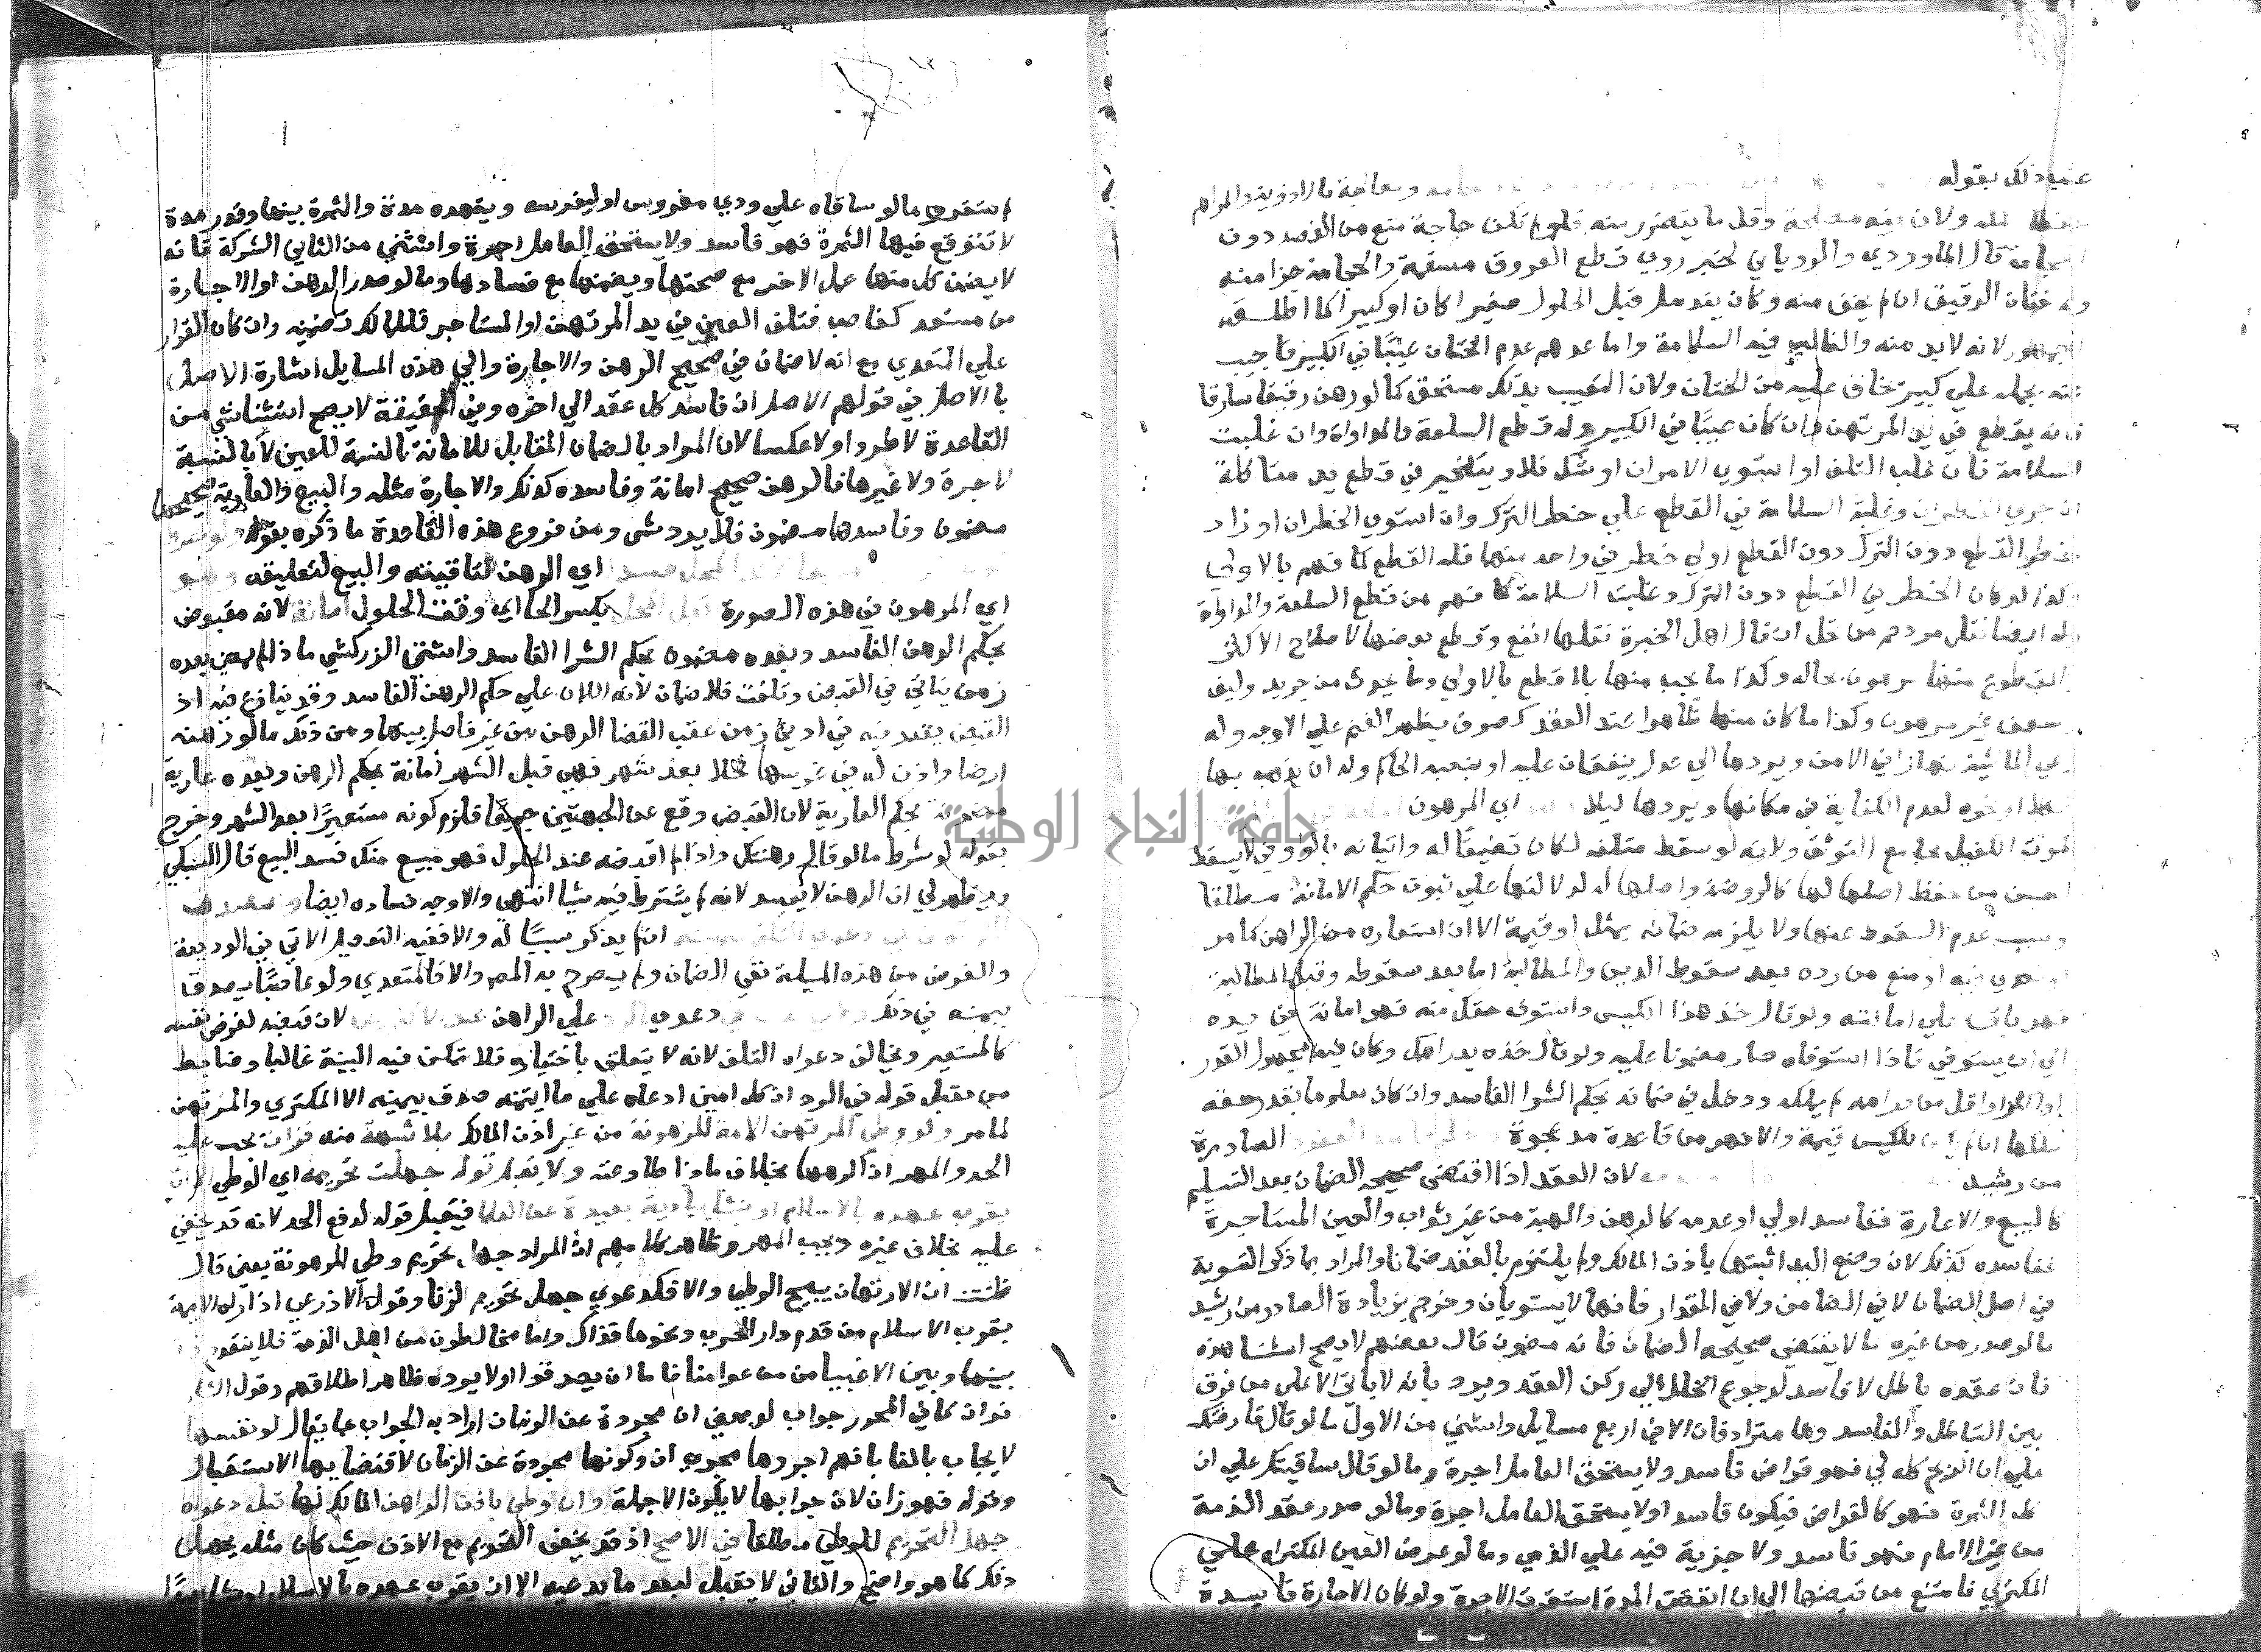 عنه ذلك بقوله ومعالجة بالادوية والمراهم
حفظا لملكه ولان فيه مصلحة وقل ما يتضرر منه فلو لم تكن حاجة منع من الفصد دون
الحجامة قال الماوردي والروياني لخبر روي قطع العروق مسقمة والحجامة خير منه
وله ختان الرقيق ان لم يخف منه وكان يندمل قبل الحلول صغيرا كان او كبيرا كما اطلقه
الجمهور لانه لابد منه والغالب فيه السلامة واما عدهم عدم الختان عيبا في الكبير فاجيب
عنه بحمله علي كبير يخاف عليه من الختان ولان التعييب بذلك مستحق كما لو رهن رقيقا سارقا
فانه يقطع في يد المرتهن وان كان عيبا في الكبير وله قطع السلعة والمداواة وان غلبت
السلامة فان غلب التلف او استوي الامران او شك فلا ويتخير في قطع يد متاكلة
ان جري الخطران وغلبة السلامة في القطع علي خطر الترك وان استوي الخطران او زاد
خطر القطع دون الترك دون القطع اولي خطر في واحد منهما فله القطع كما فهم بالاولي
وكذا لو كان الخطر في القطع دون الترك وغلبت السلامة كما فهم من قطع السلعة والمداواة
وله ايضا نقل مزدحم من نخل ان قال اهل الخبرة نقلها انفع وقطع بعضها لاصلاح الاكثر
والمقطوع منها مرهون بحاله وكذا ما يجب منها بالقطع بالاولي وما يحدث من جريد وليف
وسعف غير مرهون وكذا ما كان منها ظاهرا عند العقد كصوف بظهر الغنم علي الاوجه وله
رعي الماشية نهارا في الامن ويردها الي عدل يتفقان عليه او ينصبه الحاكم وله ان يذهب بها
لكلا ونحوه لعدم الكفاية في مكانها ويردها ليلا اي المرهون
لموت الكفيل بجامع التوثق ولانه لو سقط بتلفه لكان تضييعا له واتيانه بالواو في لا يسقط
احسن من حفظ اصلها لها كالروضة واصلها له لدلالتها علي ثبوت حكم الامانة مطلقا
وسبب عدم السقوط عنها ولا يلزمه ضمانه بمثل او قيمة الا ان استعاره من الراهن كما مر
او تعدي فيه او منع من رده بعد سقوط الدين والمطالبة اما بعد سقوطه وقبل المطالبة
فهو باق علي امانته ولو قال خذ هذا الكيس واستوف حقك منه فهو امانة في يده
الي ان يستوفي فاذا استوفاه صار مضمونا عليه ولو قال خذه بدراهمك وكان فيه مجهول القدر
او اكثر او اقل من دراهمه لم يملكه ودخل في ضمانه بحكم الشرا الفاسد وان كان معلوما بقدر حقه
ملكها ان لم يكن للكيس قيمة والا فهو من قاعدة مد عجوة الصادرة
من رشيد لان العقد اذا اقتضي صحيحه الضمان بعد التسليم
كالبيع والاعارة ففاسد اولي او عدمه كالرهن والهبة من غير ثواب والعين المستاجرة
ففاسده كذلك لان وضع اليد اثبتها باذن المالك ولم يلتزم بالعقد ضمانا والمراد بما ذكر التسوية
في اصل الضمان لا في الضامن ولا في المقدار فانهما لا يستويان وخرج بزيادة الصادر من رشيد
ما لو صدر من غيره ما لا يقتضي صحيحه الضمان فانه مضمون قال بعضهم لا يصح استثنا هذه
فان عقده باطل لا فاسد لرجوع الخلل الي ركن العقد ويرد بانه لا ياتي الا علي من فرق
بين الباطل والفاسد وهما مترادفان الا في اربع مسايل واستثني من الاول ما لو قال قارضتك
علي ان الربح كله لي فهو قراض فاسد ولا يستحق العامل اجرة وما لو قال ساقيتك علي ان
كل الثمرة فهو كالقراض فيكون فاسدا ولا يستحق العامل اجرة وما لو صدر عقد الذمة
من غير الامام فهو فاسد ولا جزية فيه علي الذمي وما لو عرض العين المكتراه علي
المكتري فامتنع من قبضها الي ان انقضت المدة استقرت الاجرة ولو كان الاجارة فاسدة
لم تستقر وما لو ساقاه علي ودي مغروس او ليغرسه ويتعهده مدة والثمرة بينهما وقدر مدة
لا تتوقع فيها الثمرة فهو فاسد ولا يستحق العامل اجرة واستثني من الثاني الشركة فانه
لا يضمن كل منهما عمل الاخر مع صحتها ويضمنها مع فسادها وما لو صدر الرهن او الاجارة
من متعد كغاصب فتلف العين في يد المرتهن او المستاجر فللمالك تضمينه وان كان القرار
علي المتعدي مع انه لا ضمان في صحيح الرهن والاجارة والي هذه المسايل اشارة الاصل
بالاصل في قولهم الاصل ان فاسد كل عقد الي اخره وفي الحقيقة لا يصح استثنا شي من
القاعدة لا طردا ولا عكسا لان المراد بالضمان المقابل للامانة بالنسبة للعين لا بالنسبة
لاجرة ولا غيرها فالرهن صحيح امانة وفاسده كذلك والاجارة مثله والبيع والعارية صحيحهما
مضمون وفاسدهما مضمون فلا يرد شي ومن فروع هذه القاعدة ما ذكره بقوله ولو شرط
اي الرهن لتاقيته والبيع لتعليقه وهو
اي المرهون في هذه الصورة قبل المحل بكسر الحا اي وقت الحلول امانة لانه مقبوض
بحكم الرهن الفاسد وبعده مضمون بحكم الشرا الفاسد واستثني الزركشي ما ذا لم يمض بعده
زمن يتاتي في القبض وتلفت فلا ضمان لانه الان علي حكم الرهن الفاسد وقد ينازع فيه اذ
القبض يقدر فيه في ادني زمن عقب انقضا الرهن من غير فاصل بينهما ومن ذلك ما لو رهنه
ارضا واذن له في غرسها نخلا بعد شهر فهي قبل الشهر امانة بحكم الرهن وبعده عارية
مضمونة بحكم العارية لان القبض وقع عن الجهتين جميعا فلزم كونه مستعيرا بعد الشهر وخرج
بقوله لو شرط ما لو قال رهنتك واذا لم اقضه عند الحلول فهو مبيع منك فسد البيع قال السبكي
ويظهر لي ان الرهن لا يفسد لانه لم يشترط فيه شيا انتهي والاوجه فساده ايضا ويصدق
المرتهن في دعوي التلف بيمينه ان لم يذكر سببا له والا ففيه التفصيل الاتي في الوديعة
والغرض من هذه المسيلة نفي الضمان ولم يصرح به المصنف والا فالمتعدي ولو غاصبا يصدق
بيمينه في ذلك دعوي الرد علي الراهن لان قبضه لغرض نفسه
كالمستعير ويخالف دعواه التلف لانه لا يتعلق باختياره فلا تمكن فيه البينة غالبا وضابط
من يقبل قوله في الرد ان كل امين ادعاه علي من ايتمنه صدق بيمينه الا المكتري والمرتهن
لما مر ولو وطي المرتهن الامة المرهونة من غير اذن المالك بلا شبهة منه فزان يجب عليه
الحد والمهر اذ اكرهها بخلاف ما اذا طاوعته ولا يقبل قوله جهلت تحريمه اي الوطي الا ان
يقرب عهده بالاسلام او ينشا ببادية بعيدة عن العلما فيقبل قوله لدفع الحد لانه قد يخفي
عليه بخلاف غيره ويجب المهر وظاهر كلامهم ان المراد جهل تحريم وطي المرهونة يعني قال
ظننت ان الارتهان يبيح الوطي والا فكدعوي جهل تحريم الزنا وقول الاذرعي اذ المراد الامة
بقرب الاسلام من قدم من دار الحرب ونحوها فذاك واما مخالطون من اهل الذمة فلا ينقدح
بينهم وبين الاغبيا من عوامنا فاما ان يصدقوا او لا يرده ظاهر اطلاقهم وقول
فزان كما في المحرر جواب لو بمعني ان مجردة عن الزمان اراد به الجواب عما يقال لو نفسها
لا يجاب بالفا بانهم اجروها مجري ان وكونها مجردة عن الزمان لاقتضايها الاستقبال
وقوله فهو زان لان جوابها لا يكون الا جملة وان وطي باذن الراهن المالك لها قبل دعواه
جهل التحريم للوطي مطلقا في الاصح اذ قد يخفي التحريم مع الاذن حيث كان مثله يجهل
ذلك كما هو واضح والثاني لا يقبل لبعد ما يدعيه الا ان يقرب عهده بالاسلام او ينشا بعيدا
جامعة النجاح الوطنية